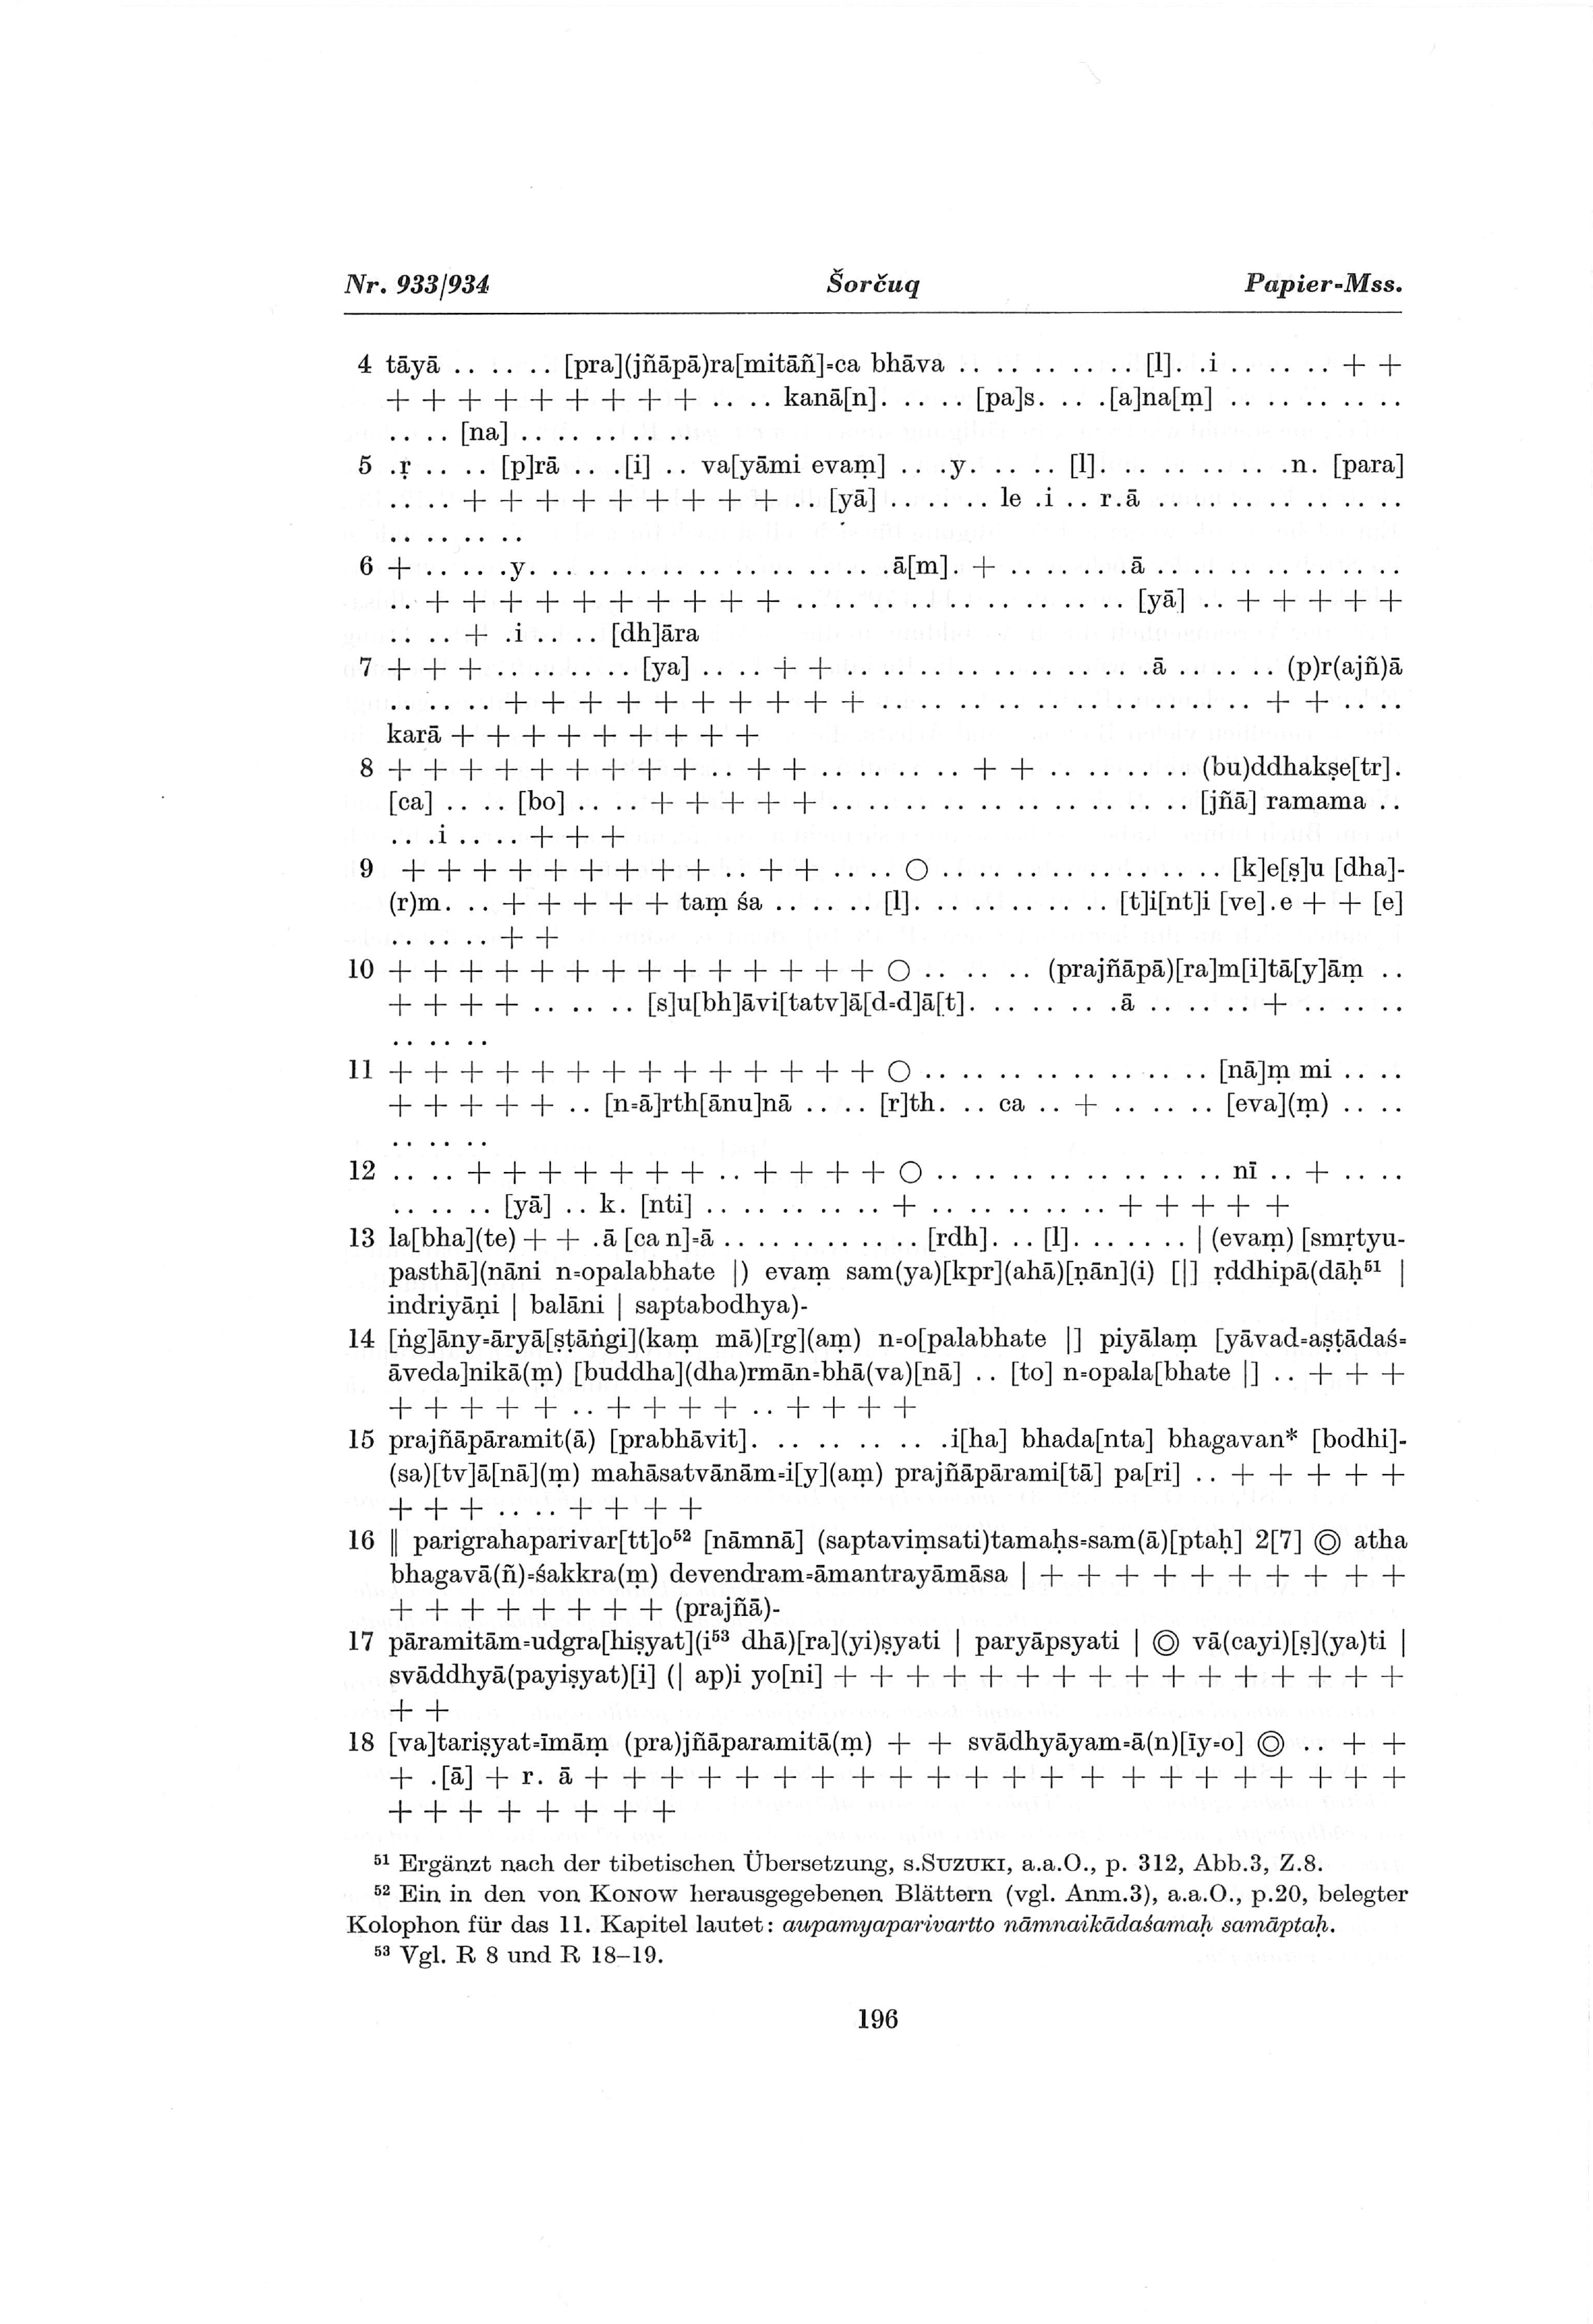 Nr. 933/934 Šorčuq Papier-Mss.
4 tāyā .. .. .. [pra](jñāpā)ra[mitāñ]=ca bhāva .. .. .. .. .. [l]. .i .. .. .. + +
+ + + + + + + + + .. .. kanā[n]. .. .. [pa]s. .. .[a]na[ṃ] .. .. .. .. ..
.. .. [na] .. .. .. .. ..
5 .ṛ .. .. [p]rā .. .[i] .. va[yāmi evaṃ] .. .y. .. .. [l]. .. .. .. .. .n. [para]
.. .. + + + + + + + + + .. [yā] .. .. .. le .i .. r.ā .. .. .. .. .. .. ..
.. .. .. ..
6 + .. .. .y. .. .. .. .. .. .. .. .. .. .ā[m]. + .. .. .. .ā .. .. .. .. .. .. ..
.. + + + + + + + + + + .. .. .. .. .. .. .. .. .. [yā] .. + + + + +
.. .. + .i .. .. [dh]āra
7 + + + .. .. .. .. [ya] .. .. + + .. .. .. .. .. .. .. .. .ā .. .. .. (p)r(ajñ)ā
.. .. .. + + + + + + + + + + .. .. .. .. .. .. .. .. .. .. + + .. ..
karā + + + + + + + + +
8 + + + + + + + + + .. + + .. .. .. .. + + .. .. .. .. (bu)ddhakṣe[tr].
[ca] .. .. [bo] .. .. + + + + + .. .. .. .. .. .. .. .. .. [jñā] ramama ..
.. .i .. .. + + +
9 + + + + + + + + + .. + + .. .. ○ .. .. .. .. .. .. .. .. [k]e[ṣ]u [dha]-
(r)m. .. + + + + + taṃ śa .. .. .. [l]. .. .. .. .. .. [t]i[nt]i [ve].e + + [e]
.. .. .. + +
10 + + + + + + + + + + + + + + ○ .. .. .. (prajñāpā)[ra]m[i]tā[y]āṃ ..
+ + + + .. .. .. [s]u[bh]āvi[tatv]ā[d=d]ā[t]. .. .. .. .ā .. .. .. + .. .. ..
.. .. ..
11 + + + + + + + + + + + + + + ○ .. .. .. .. .. .. .. .. [nā]ṃ mi .. ..
+ + + + + .. [n=ā]rth[ānu]nā .. .. [r]th. .. ca .. + .. .. .. [eva](ṃ) .. ..
.. .. ..
12 .. .. + + + + + + + .. + + + + ○ .. .. .. .. .. .. .. .. nī .. + .. ..
.. .. .. [yā] .. k. [nti] .. .. .. .. .. + .. .. .. .. .. + + + + +
13 la[bha](te) + + .ā [ca n]=ā .. .. .. .. .. .. [rdh]. .. [l]. .. .. .. | (evaṃ) [smṛtyu-
pasthā](nāni n=opalabhate |) evaṃ sam(ya)[kpr](ahā)[ṇān](i) [|] ṛddhipā(dāḥ⁵¹ |
indriyāṇi | balāni | saptabodhya)-
14 [ṅg]āny=āryā[ṣṭāṅgi](kaṃ mā)[rg](aṃ) n=o[palabhate |] piyālaṃ [yāvad=aṣṭādaś=
āveda]nikā(ṃ) [buddha](dha)rmān=bhā(va)[nā] .. [to] n=opala[bhate |] .. + + +
+ + + + + .. + + + + .. + + + +
15 prajñāpāramit(ā) [prabhāvit]. .. .. .. .. .i[ha] bhada[nta] bhagavan* [bodhi]-
(sa)[tv]ā[nā](ṃ) mahāsatvānām=i[y](aṃ) prajñāpārami[tā] pa[ri] .. + + + + +
+ + + .. .. + + + +
16 ‖ parigrahaparivar[tt]o⁵² [nāmnā] (saptaviṃsati)tamaḥs=sam(ā)[ptaḥ] 2[7] ◎ atha
bhagavā(ñ)=śakkra(ṃ) devendram=āmantrayāmāsa | + + + + + + + + + +
+ + + + + + + + (prajñā)-
17 pāramitām=udgra[hiṣyat](i⁵³ dhā)[ra](yi)ṣyati | paryāpsyati | ◎ vā(cayi)[ṣ](ya)ti |
svāddhyā(payiṣyat)[i] (| ap)i yo[ni] + + + + + + + + + + + + + + + +
+ +
18 [va]tariṣyat=īmāṃ (pra)jñāparamitā(ṃ) + + svādhyāyam=ā(n)[īy=o] ◎ .. + +
+ .[ā] + r. ā + + + + + + + + + + + + + + + + + + + + + +
+ + + + + + + +
⁵¹ Ergänzt nach der tibetischen Übersetzung, s.SUZUKI, a.a.O., p. 312, Abb.3, Z.8.
⁵² Ein in den von KONOW herausgegebenen Blättern (vgl. Anm.3), a.a.O., p.20, belegter
Kolophon für das 11. Kapitel lautet: aupamyaparivartto nāmnaikādaśamaḥ samāptaḥ.
⁵³ Vgl. R 8 und R 18–19.
196